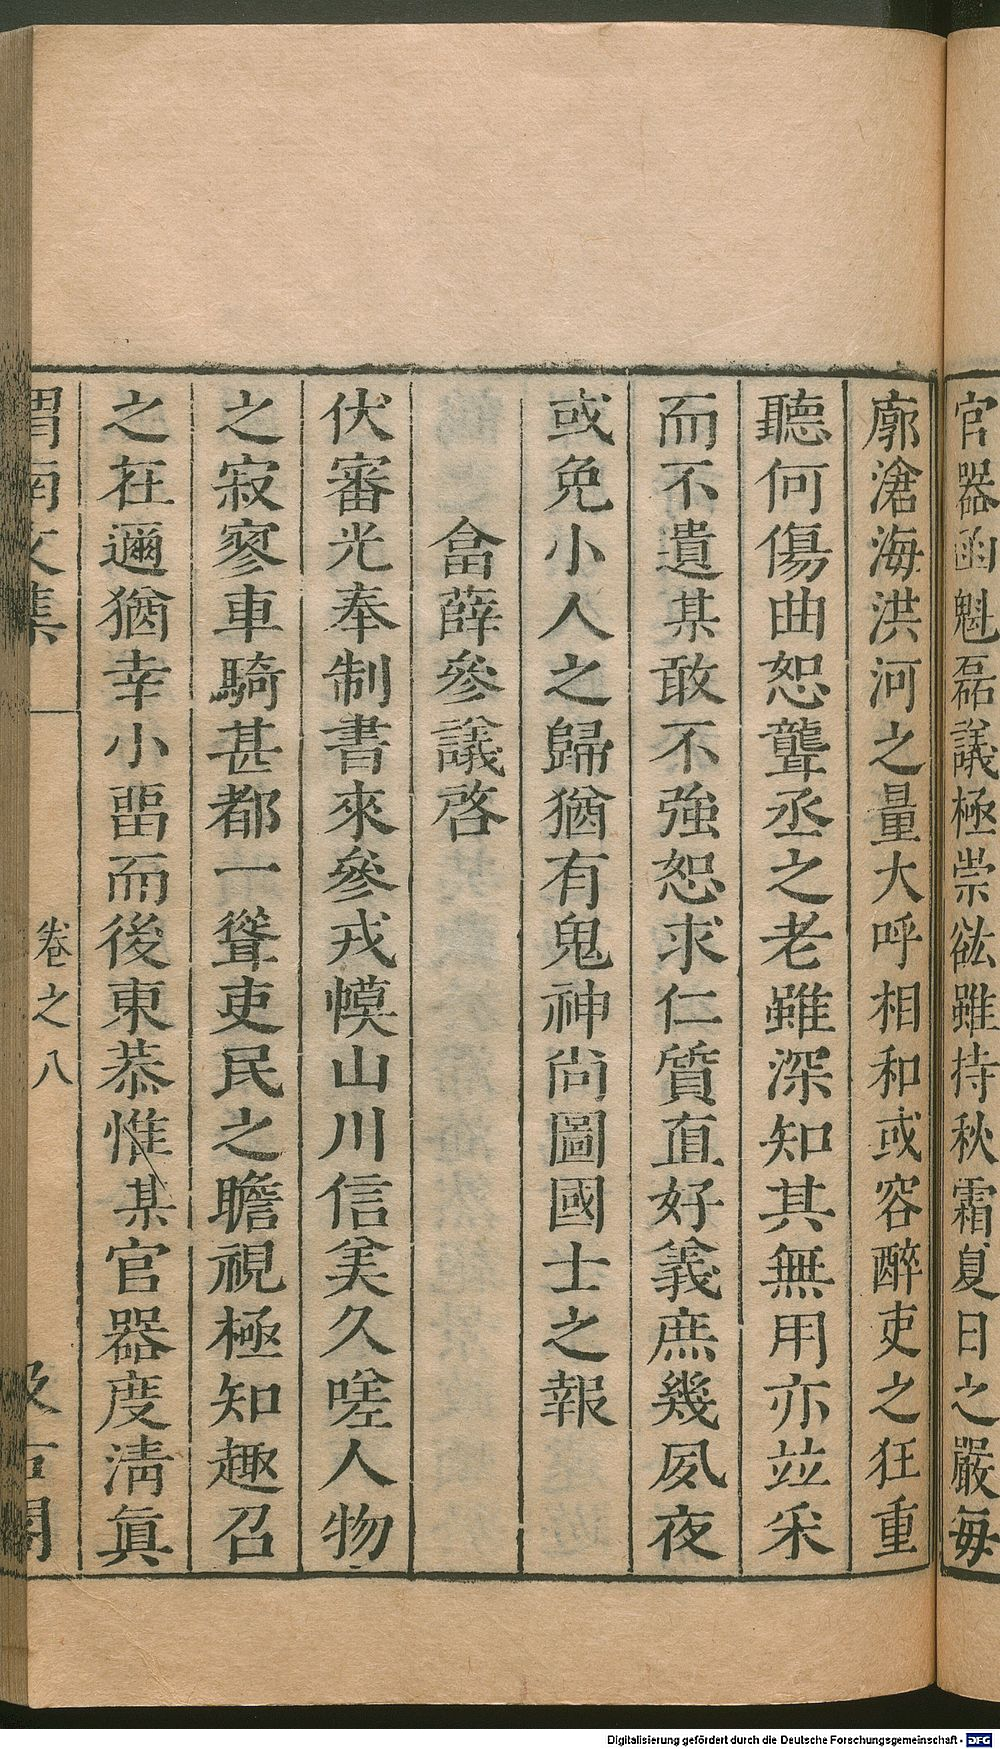 官器函魁磊議極崇竑雖持秋霜夏日之嚴每
廓滄海洪河之量大呼相和或容醉吏之狂重
聽何傷曲恕聾丞之老雖深知其無用亦竝采
而不遺某敢不強恕求仁質直好義庶幾夙夜
或免小人之歸猶有鬼神尚圖國士之報
畣薛參議啓
伏審光奉制書來參戎幙山川信美久嗟人物
之寂寥車騎甚都一聳吏民之瞻視極知趣召
之在邇猶幸小畱而後東恭惟某官器度淸眞
渭南文集
卷之八
汲古閣
Digitalisierung gefördert durch die Deutsche Forschungsgemeinschaft - DFG